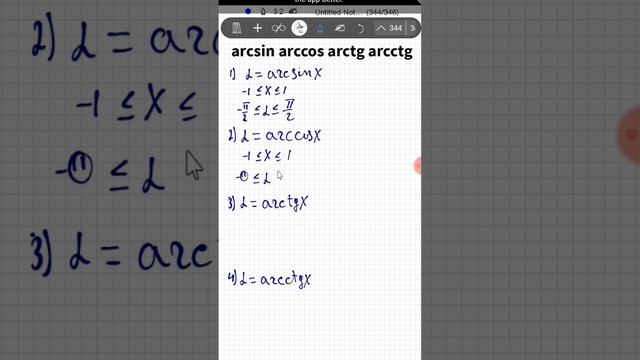 the app better.
3.2 Untitled Not... (344/346)
344
arcsin arccos arctg arcctg
1) α = arcsin x
-1 ≤ x ≤ 1
-π/2 ≤ α ≤ π/2
2) α = arccos x
-1 ≤ x ≤ 1
≤ α
3) α = arctg x
4) α = arcctg x
2) α = arc
-1 ≤ x ≤
≤ α
3) α = arc